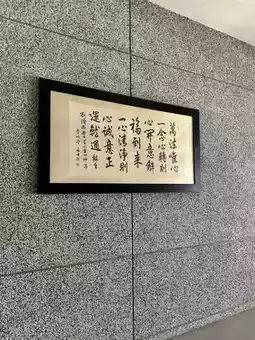 萬法唯心
一念心轉則
心開意解
福到來
一心清淨則
心誠意正
運就通